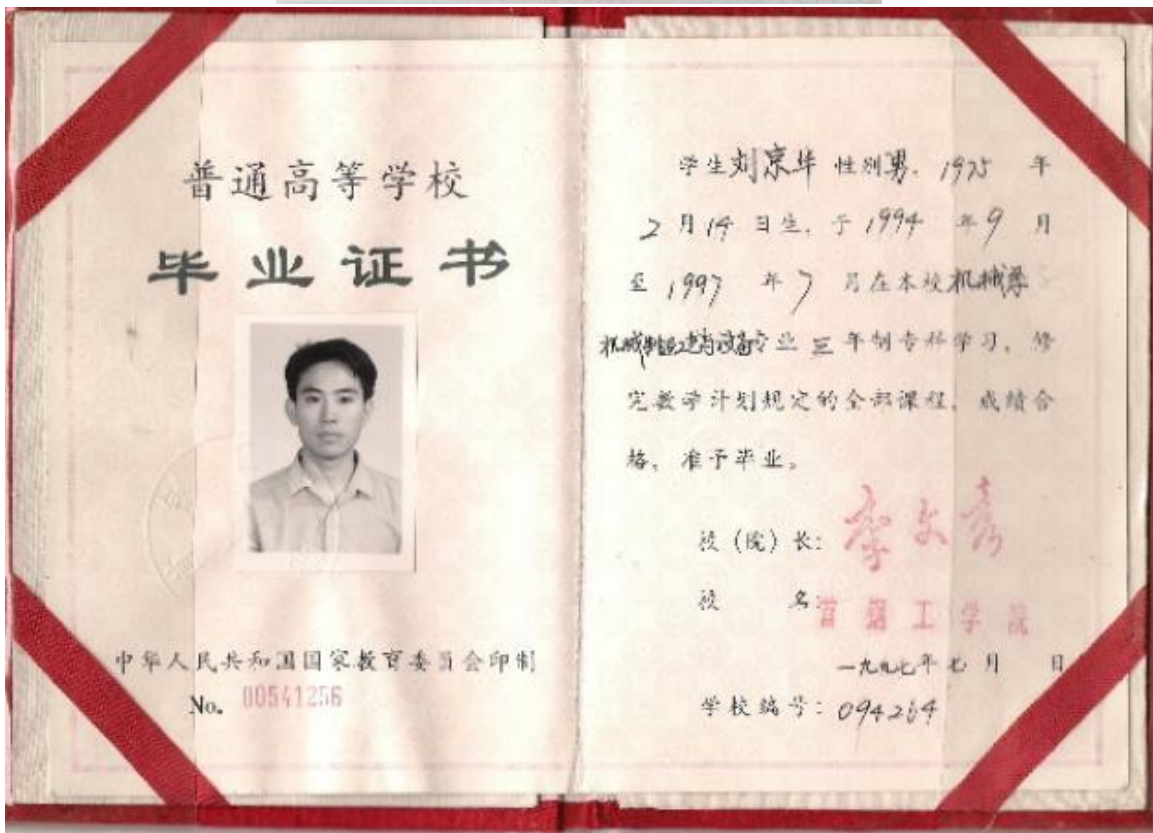 普通高等学校
毕业证书
中华人民共和国国家教育委员会印制
No. 00541256
学生刘京华 性别男, 1975 年
2 月 14 日生, 于 1994 年 9 月
至 1997 年 7 月在本校机械系
机械制造工艺与设备专业 三 年制专科学习, 修
完教学计划规定的全部课程, 成绩合
格, 准予毕业。
校 (院) 长: 李文秀
校 名: 首钢工学院
一九九七年七月 日
学校编号: 094264